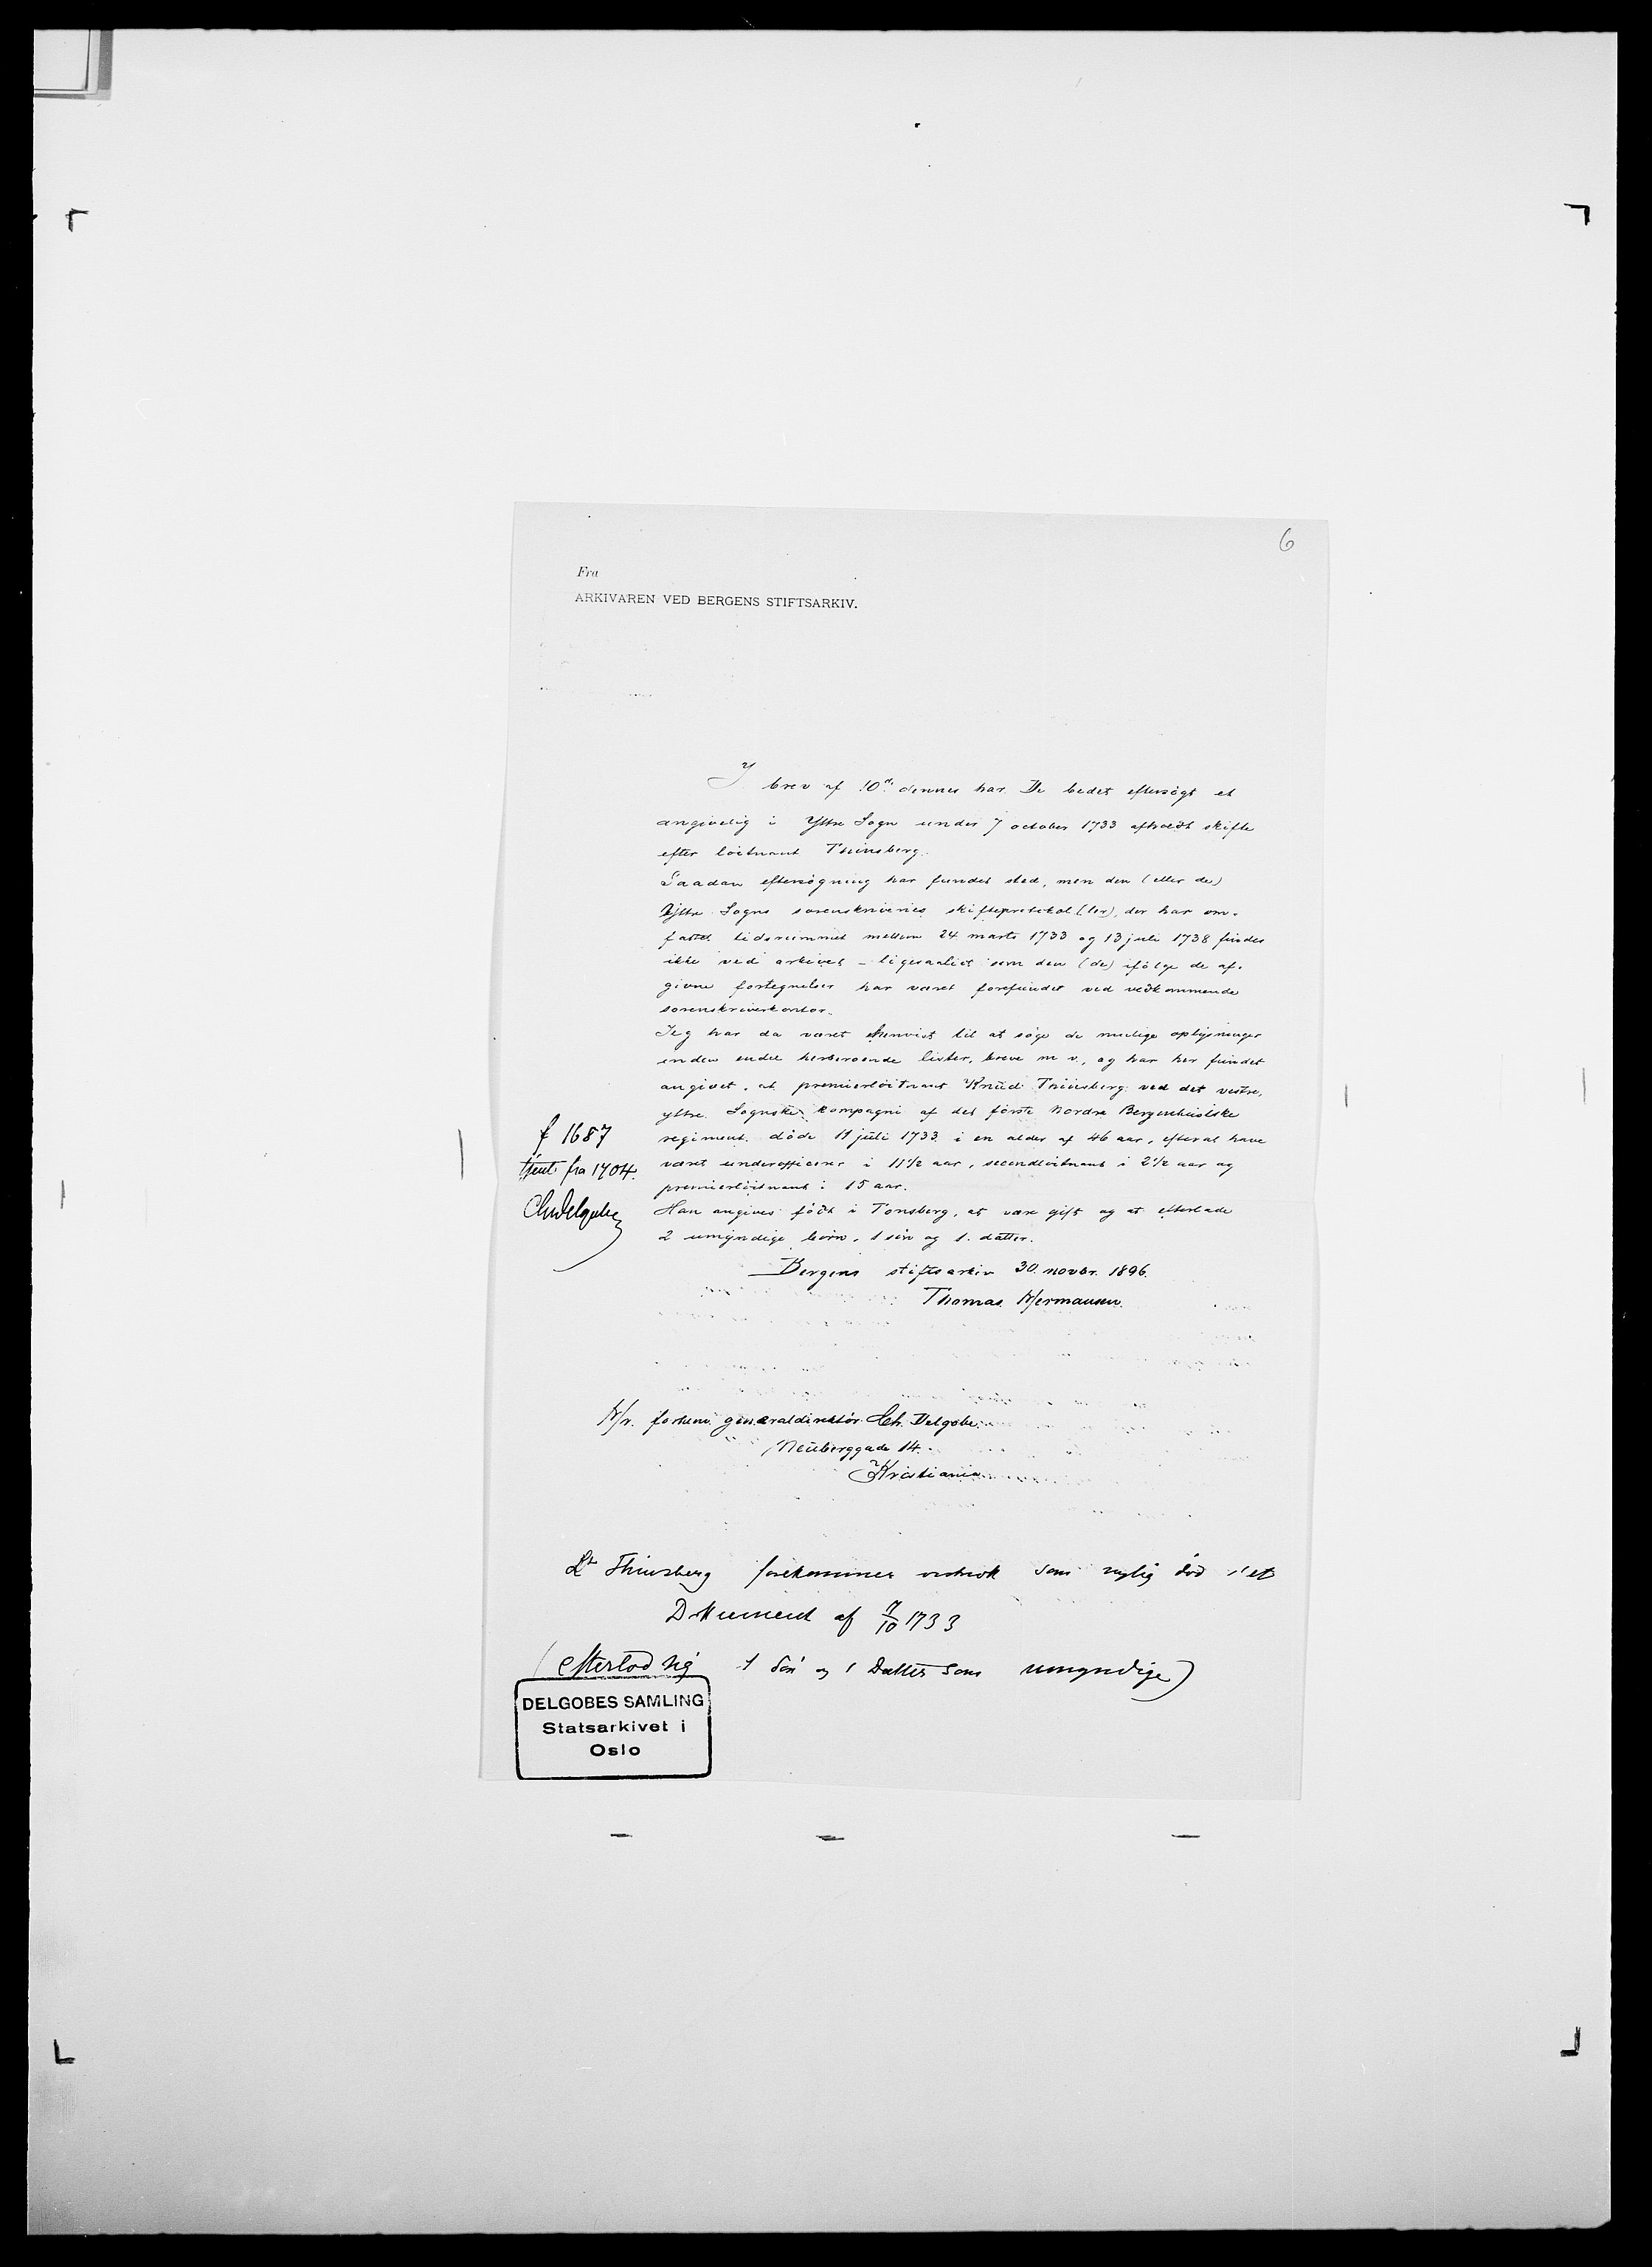 6
Fra
ARKIVAREN VED BERGENS STIFTSARKIV.
I brev af 10de dennes har De bedet eftersøgt et
angivelig i Yttre Sogn under 7 october 1733 afholdt skifte
efter løitnant Thünsberg.
Saadan eftersøgning har fundet sted, men den (eller de)
Yttre Sogns sorenskriveries skifteprotokol (ler), der har om-
fattet tidsrummet mellem 24 marts 1733 og 13 juli 1738 findes
ikke ved arkivet – ligesaalidt som den (de) ifølge de af-
givne fortegnelser har været forefundet ved vedkommende
sorenskriverkontor.
Jeg har da været henvist til at søge de mulige oplysninger
i en del herberoende lister, breve m. v., og har her fundet
angivet, at premierløitnant Knüd Thünsberg ved det vestre,
yttre Sognske kompagni af det første Nordre Bergenhusiske
regiment døde 11 juli 1733 i en alder af 46 aar, efter at have
været underofficerer i 11 1/2 aar, secondløitnant i 2 1/2 aar og
premierløitnant i 15 aar.
Han angives født i Tønsberg, at være gift og at efterlade
2 umyndige børn, 1 søn og 1 datter.
f 1687
tjent fra 1704.
ChDelgobe
Bergens stiftsarkiv 30. novbr. 1896.
Thomas Hermansen.
Hr. forhenv. generaldirektør Ch. Delgobe.
Neuberggade 14.
Kristiania
Lt Thinsberg forekommer som nylig død i et
Dokument af 7/10 1733
(efterlod sig 1 Søn og 1 Datter som umyndige)
DELGOBES SAMLING
Statsarkivet i
Oslo